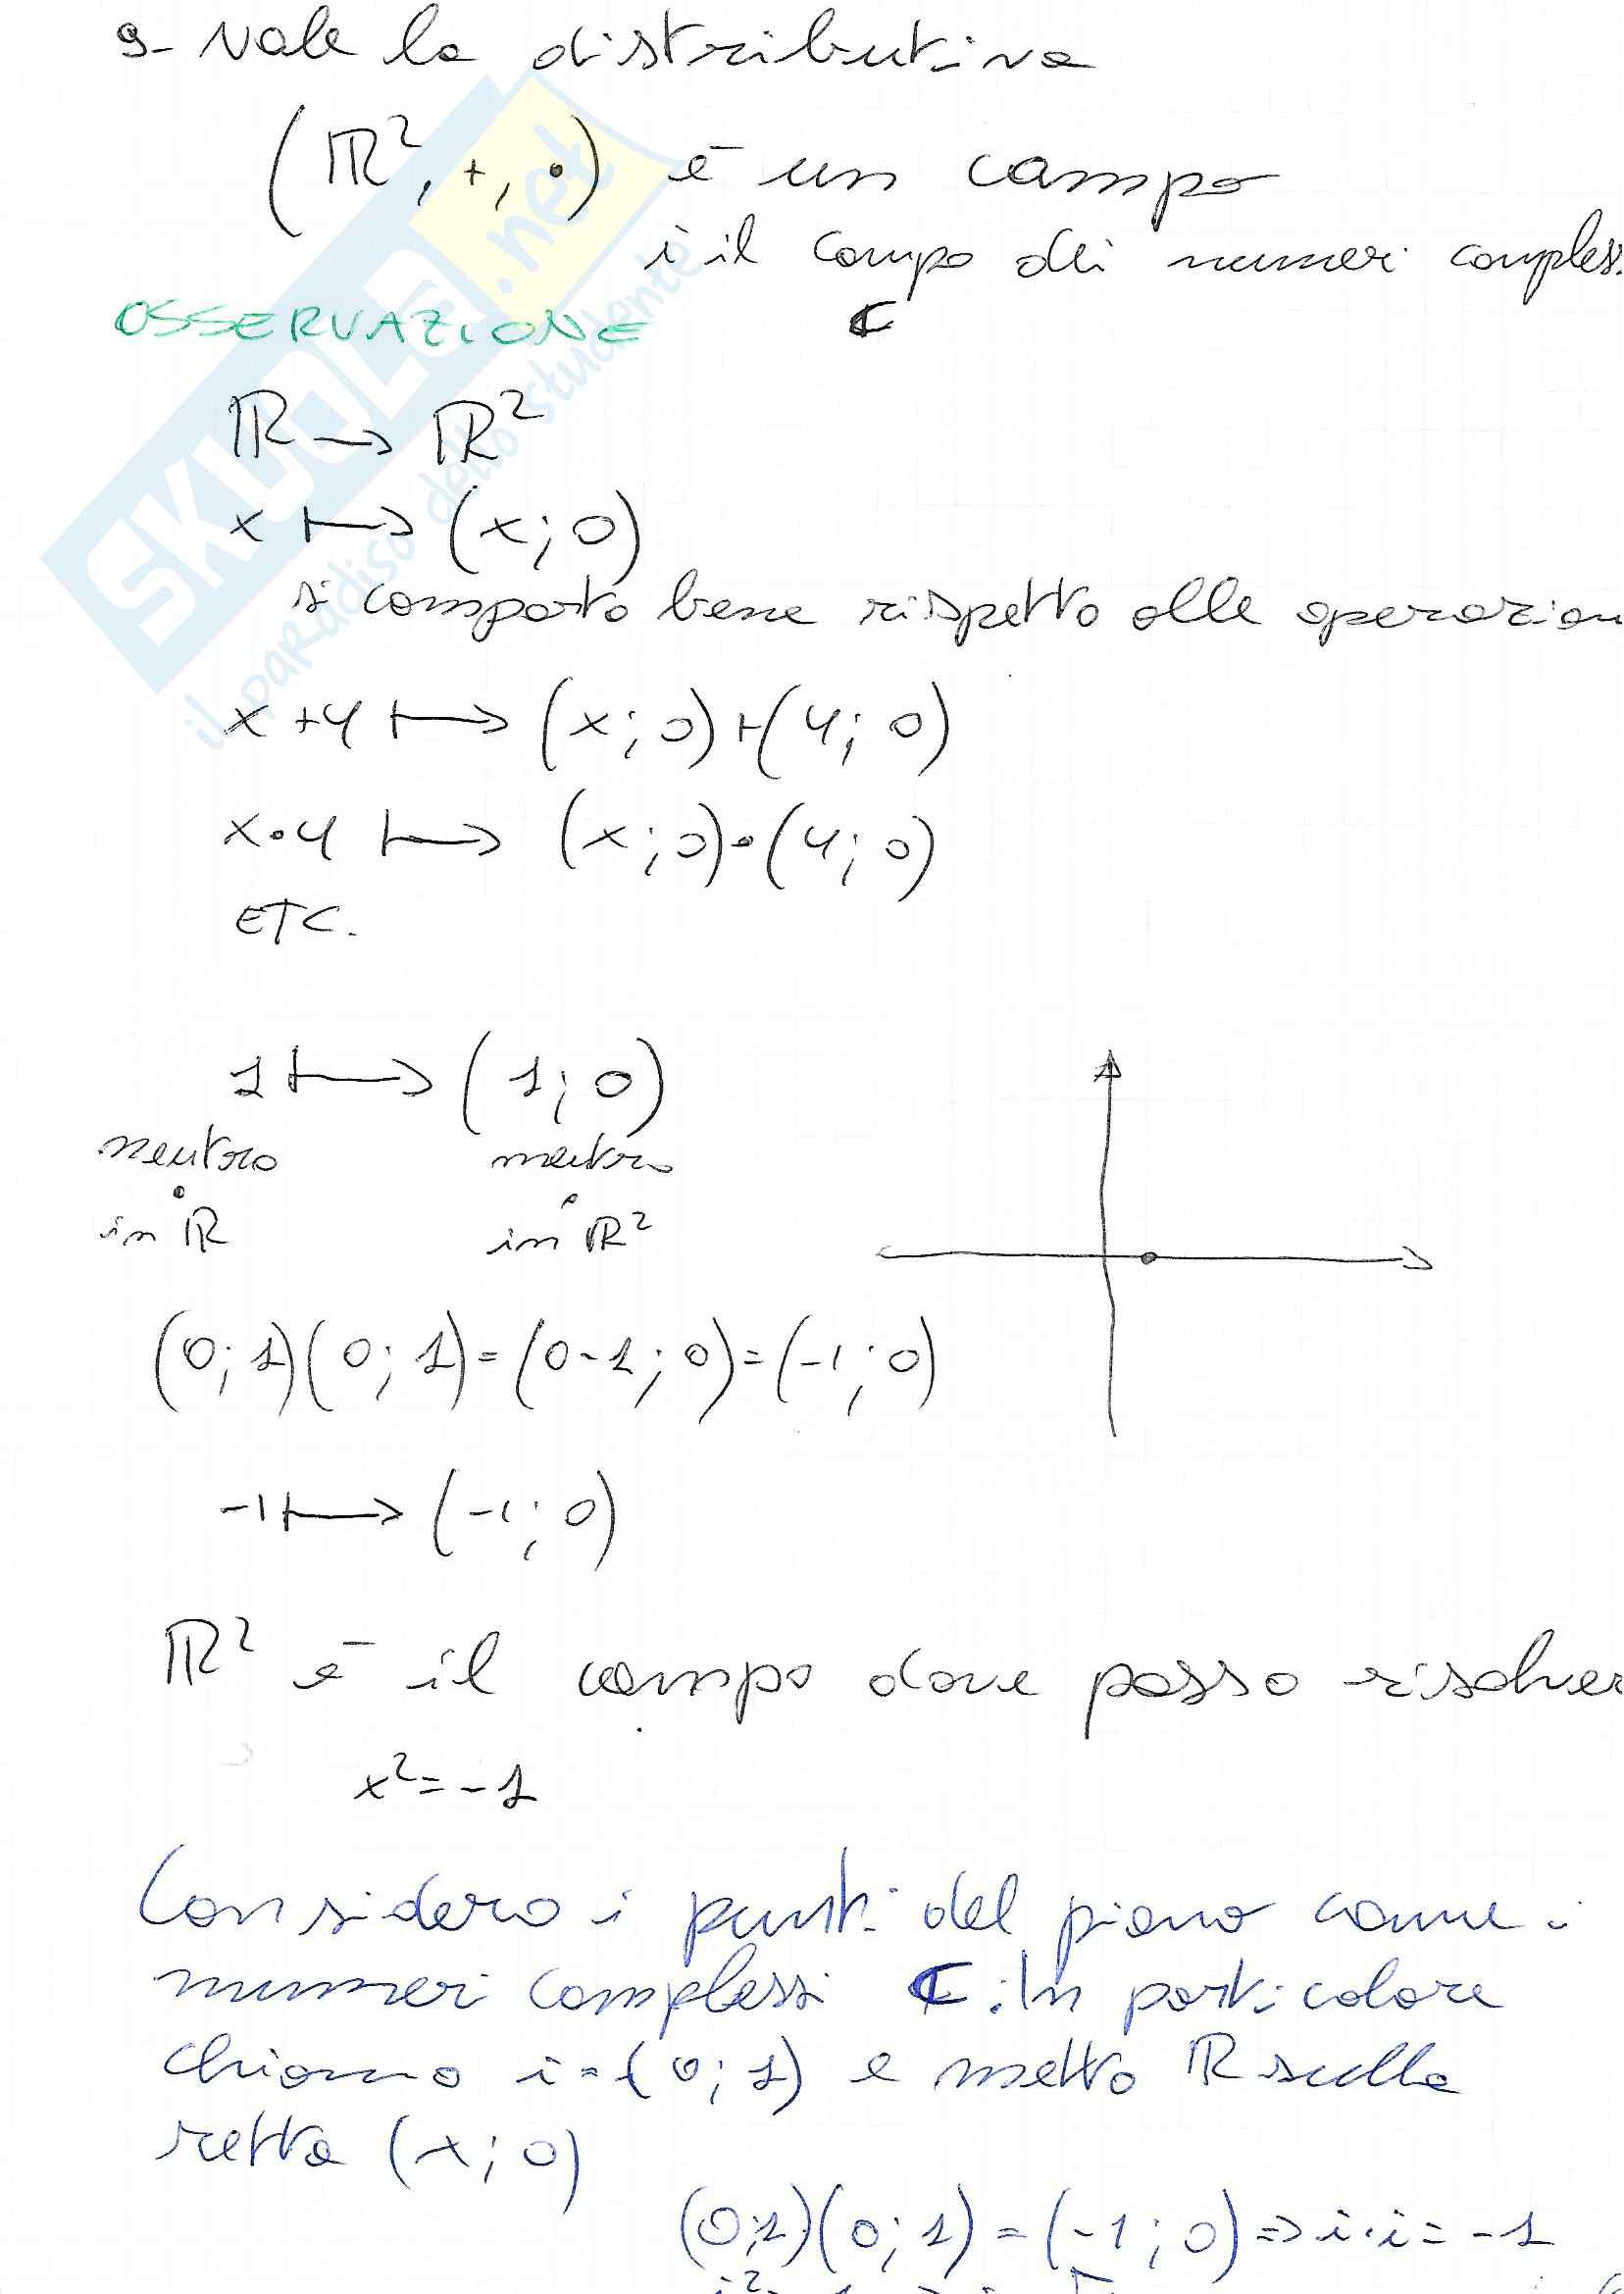 9- Vale la distributiva
(ℝ², +, •) è un campo
è il campo dei numeri comples
ℂ
OSSERVAZIONE
ℝ → ℝ²
x ↦ (x; 0)
si comporta bene rispetto alle operazion
x + y ↦ (x; 0) + (y; 0)
x • y ↦ (x; 0) • (y; 0)
ETC.
1 ↦ (1; 0)
neutro neutro
• •
in ℝ in ℝ²
(0; 1)(0; 1) = (0-1; 0) = (-1; 0)
-1 ↦ (-1; 0)
ℝ² è il campo dove posso risolver
x² = -1
Considero i punti del piano come i
numeri complessi ℂ. In particolare
chiamo i = (0; 1) e metto ℝ sulla
retta (x; 0)
(0;1)(0; 1) = (-1; 0) ⇒ i·i = -1
SKUOLA.net
il paradiso dello studente